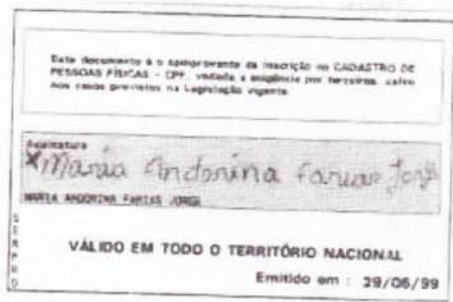 Este documento é o comprovante de inscrição no CADASTRO DE
PESSOAS FÍSICAS - CPF, vedada a exigência por terceiros, salvo
nos casos previstos na Legislação vigente
Assinatura
Maria Andorina Farias Jorge
MARIA ANDORINA FARIAS JORGE
SERPRO
VÁLIDO EM TODO O TERRITÓRIO NACIONAL
Emitido em : 29/06/99